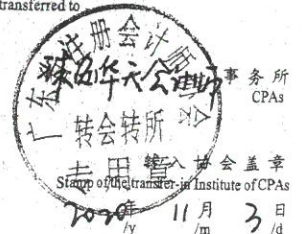 transferred to
事务所
CPAs
广东省注册会计师协会
转会转所
专用章
转入协会盖章
Stamp of the transfer-in Institute of CPAs
2020年 11月 3日
/y /m /d